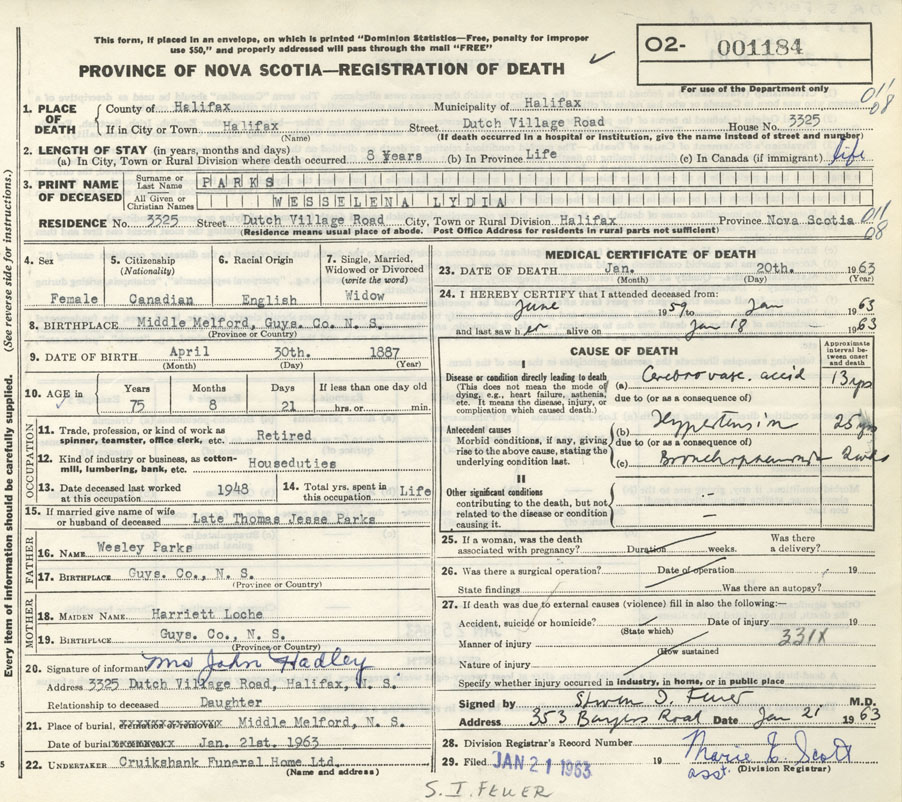 This form, if placed in an envelope, on which is printed "Dominion Statistics—Free, penalty for improper
use $50," and properly addressed will pass through the mail "FREE"
PROVINCE OF NOVA SCOTIA—REGISTRATION OF DEATH
O2- 001184
For use of the Department only
011
08
1. PLACE OF DEATH County of Halifax Municipality of Halifax
If in City or Town Halifax Street Dutch Village Road House No. 3325
(Name) (If death occurred in a hospital or institution, give the name instead of street and number)
2. LENGTH OF STAY (in years, months and days)
(a) In City, Town or Rural Division where death occurred 8 Years (b) In Province Life (c) In Canada (if immigrant) life
3. PRINT NAME OF DECEASED
Surname or Last Name PARKS
All Given or Christian Names WESSELENA LYDIA
RESIDENCE No. 3325 Street Dutch Village Road City, Town or Rural Division Halifax Province Nova Scotia 011
08
(Residence means usual place of abode. Post Office Address for residents in rural parts not sufficient)
(See reverse side for instructions.)
Every item of information should be carefully supplied.
4. Sex Female
5. Citizenship (Nationality) Canadian
6. Racial Origin English
7. Single, Married, Widowed or Divorced (write the word) Widow
8. BIRTHPLACE Middle Melford, Guys. Co. N. S.
(Province or Country)
9. DATE OF BIRTH April 30th. 1887
(Month) (Day) (Year)
10. AGE in Years 75 Months 8 Days 21 If less than one day old hrs. or min.
OCCUPATION
11. Trade, profession, or kind of work as spinner, teamster, office clerk, etc. Retired
12. Kind of industry or business, as cotton-mill, lumbering, bank, etc. Houseduties
13. Date deceased last worked at this occupation 1948
14. Total yrs. spent in this occupation Life
15. If married give name of wife or husband of deceased Late Thomas Jesse Parks
FATHER
16. NAME Wesley Parks
17. BIRTHPLACE Guys. Co., N. S.
(Province or Country)
MOTHER
18. MAIDEN NAME Harriett Loche
19. BIRTHPLACE Guys. Co., N. S.
(Province or Country)
20. Signature of informant Mrs John Hadley
Address 3325 Dutch Village Road, Halifax, N. S.
Relationship to deceased Daughter
21. Place of burial, Middle Melford, N. S.
Date of burial Jan. 21st. 1963
22. UNDERTAKER Cruikshank Funeral Home Ltd.
(Name and address)
MEDICAL CERTIFICATE OF DEATH
23. DATE OF DEATH Jan. 20th. 1963
(Month) (Day) (Year)
24. I HEREBY CERTIFY that I attended deceased from:
June 1959 to Jan 1963
and last saw her alive on Jan 18 1963
CAUSE OF DEATH
Approximate interval between onset and death
I
Disease or condition directly leading to death
(This does not mean the mode of dying, e.g., heart failure, asthenia, etc. It means the disease, injury, or complication which caused death.)
(a) Cerebro vasc. accid 13 yrs
due to (or as a consequence of)
Antecedent causes
Morbid conditions, if any, giving rise to the above cause, stating the underlying condition last.
(b) Hypertension 25 yrs
due to (or as a consequence of)
(c) Bronchopneumonia 2 wks
II
Other significant conditions
contributing to the death, but not related to the disease or condition causing it.
25. If a woman, was the death associated with pregnancy? Duration weeks. Was there a delivery?
26. Was there a surgical operation? Date of operation 19
State findings Was there an autopsy?
27. If death was due to external causes (violence) fill in also the following:—
Accident, suicide or homicide? Date of injury 19
(State which)
Manner of injury 331X
(How sustained
Nature of injury
Specify whether injury occurred in industry, in home, or in public place
Signed by M.D.
Address 353 Bayers Road Date Jan 21 1963
28. Division Registrar's Record Number
29. Filed JAN 21 1963 19 Marie E. Scott
asst. (Division Registrar)
S. I. FEUER